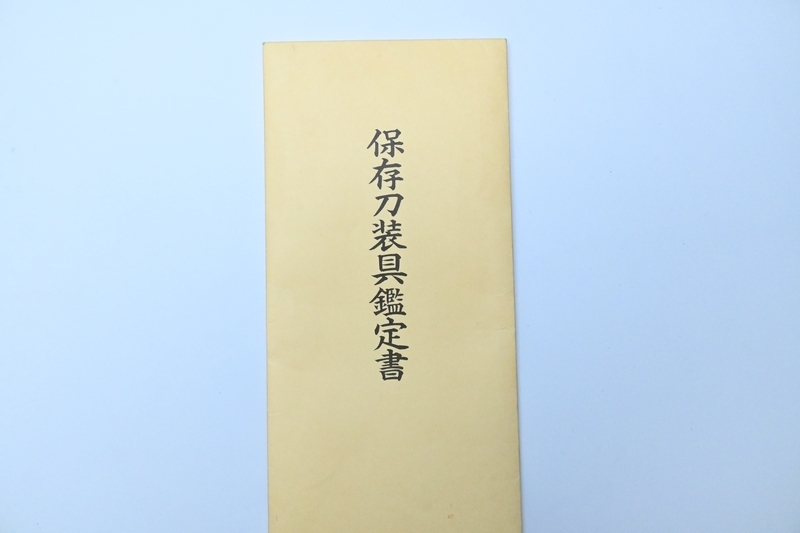 保存刀装具鑑定書